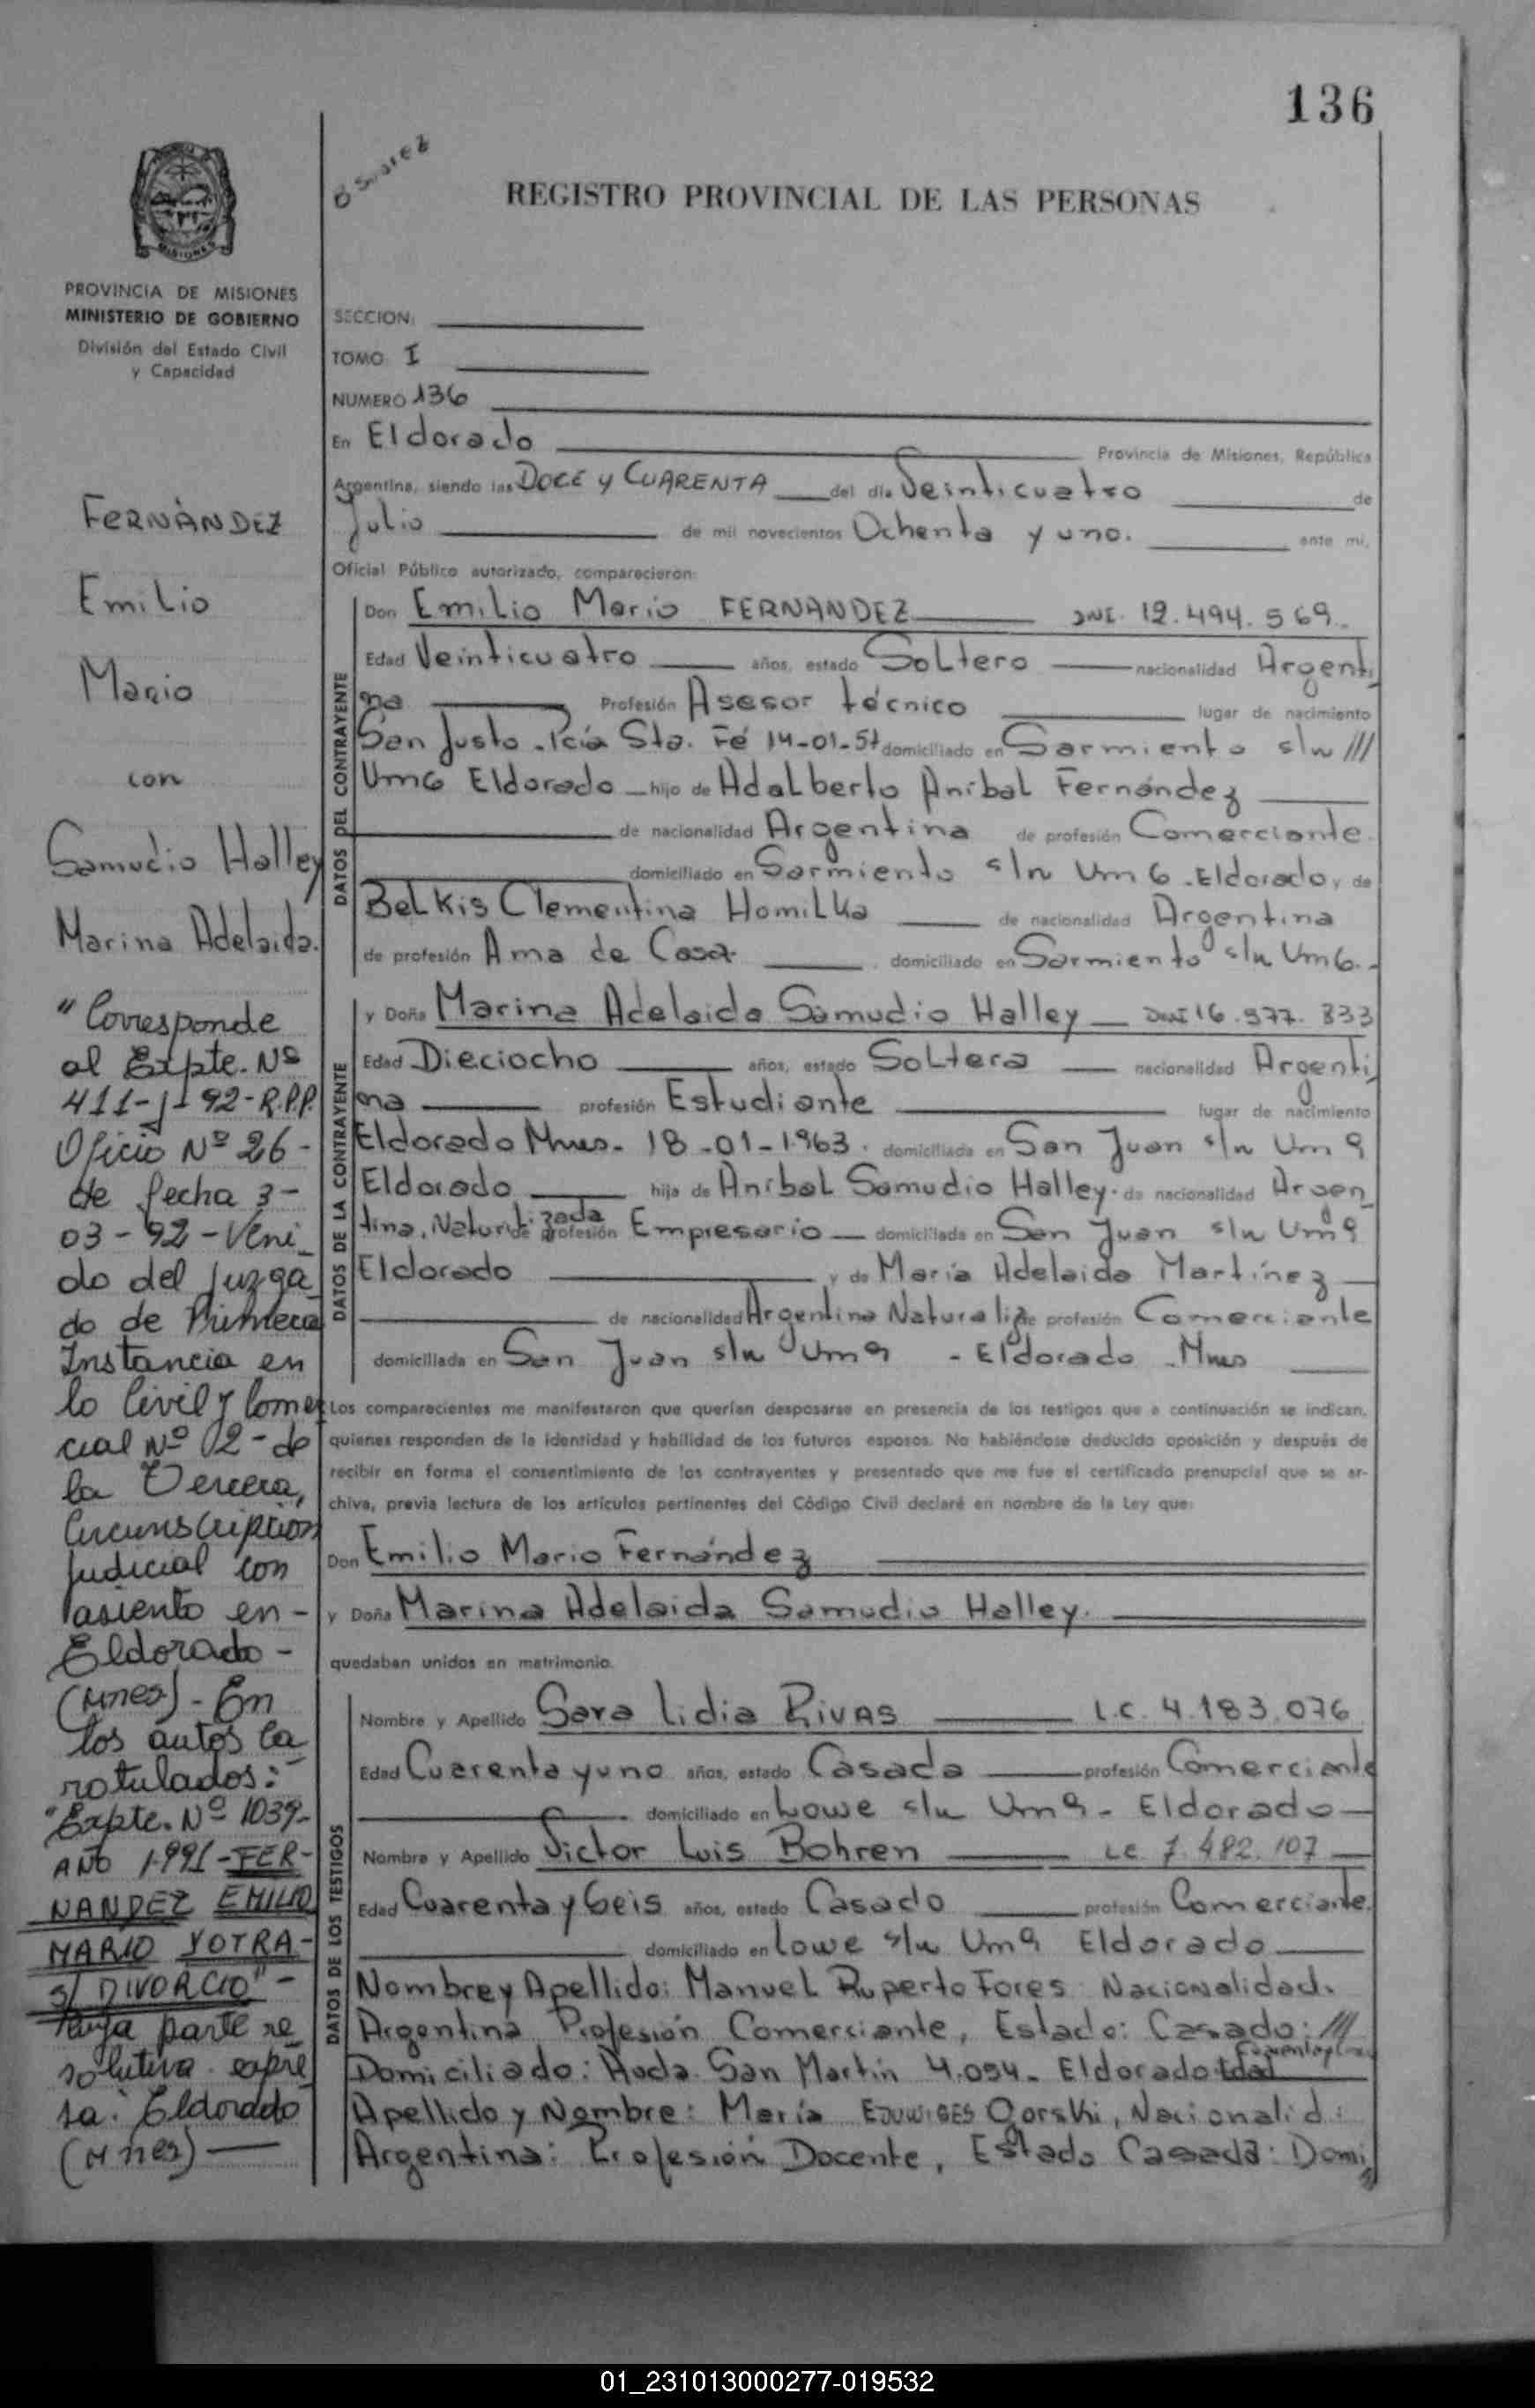 136
B Suarez
REGISTRO PROVINCIAL DE LAS PERSONAS
MISIONES
PROVINCIA DE MISIONES
MINISTERIO DE GOBIERNO
División del Estado Civil
y Capacidad
FERNÀNDEZ
Emilio
Mario
con
Samudio Halley
Marina Adelaida.
"Corresponde
al Expte. Nº
411-J-92-R.P.P.
Oficio Nº 26-
de fecha 3-
03-92-Veni_
do del Juzga
do de Primera
Instancia en
lo Civil y Comer
cial Nº 02-de
la Tercera,
Circunscripcion
Judicial con
asiento en-
Eldorado-
(Mnes)-En
los autos ca
rotulados:-
"Expte. Nº 1039-
AÑO 1991-FER-
NANDEZ EMILIO
MARIO Y OTRA-
S/ DIVORCIO"-
Cuya parte re
solutiva expre
sa: Eldorado
(Mnes)—
SECCION:
TOMO I
NUMERO 136
En Eldorado Provincia de Misiones, República
Argentina, siendo las DOCE y CUARENTA del día Veinticuatro de
Julio de mil novecientos Ochenta y uno. ante mi,
Oficial Público autorizado, comparecieron:
DATOS DEL CONTRAYENTE
Don Emilio Mario FERNANDEZ DNI. 12.494.569.
Edad Veinticuatro años, estado Soltero nacionalidad Argenti
na Profesión Asesor técnico lugar de nacimiento
San Justo. Pcia Sta. Fé 14-01-57 domiciliado en Sarmiento s/n ///
Um6 Eldorado hijo de Adalberto Anibal Fernández
de nacionalidad Argentina de profesión Comerciante.
domiciliado en Sarmiento s/n Um 6. Eldorado y de
Belkis Clementina Homilka de nacionalidad Argentina
de profesión Ama de Casa. domiciliado en Sarmiento s/n Um6.
DATOS DE LA CONTRAYENTE
y Doña Marina Adelaida Samudio Halley DNI 16.577.833
Edad Dieciocho años, estado Soltera nacionalidad Argenti
na profesión Estudiante lugar de nacimiento
Eldorado Mnes. 18-01-1963. domiciliada en San Juan s/n Um 9
Eldorado hija de Aníbal Samudio Halley. de nacionalidad Argen_
tina, Naturalizada de profesión Empresario domiciliada en San Juan s/n Um9
Eldorado y de María Adelaida Martínez
de nacionalidad Argentina Naturaliz de profesión Comerciante
domiciliada en San Juan s/n Um9 - Eldorado. Mnes
Los comparecientes me manifestaron que querían desposarse en presencia de los testigos que a continuación se indican,
quienes responden de la identidad y habilidad de los futuros esposos. No habiéndose deducido oposición y después de
recibir en forma el consentimiento de los contrayentes y presentado que me fue el certificado prenupcial que se ar-
chiva, previa lectura de los artículos pertinentes del Código Civil declaré en nombre de la Ley que:
Don Emilio Mario Fernández
y Doña Marina Adelaida Samudio Halley.
quedaban unidos en matrimonio.
DATOS DE LOS TESTIGOS
Nombre y Apellido Sara Lidia RIVAS L.C. 4.183.076
Edad Cuarenta y uno años, estado Casada profesión Comerciante
domiciliado en Lowe s/n Um9 - Eldorado
Nombre y Apellido Victor Luis Bohren LE 7.482.107
Edad Cuarenta y Seis años, estado Casado profesión Comerciante.
domiciliado en Lowe s/n Um9 Eldorado
Nombre y Apellido: Manuel Ruperto Fores Nacionalidad.
Argentina Profesión Comerciante, Estado: Casado: ///
Domiciliado: Avda. San Martín 4.094. Eldorado Edad
Apellido y Nombre: María EDUWIGES Gorski, Nacionalid:
Argentina: Profesión Docente, Estado Casada: Domi
01_231013000277-019532